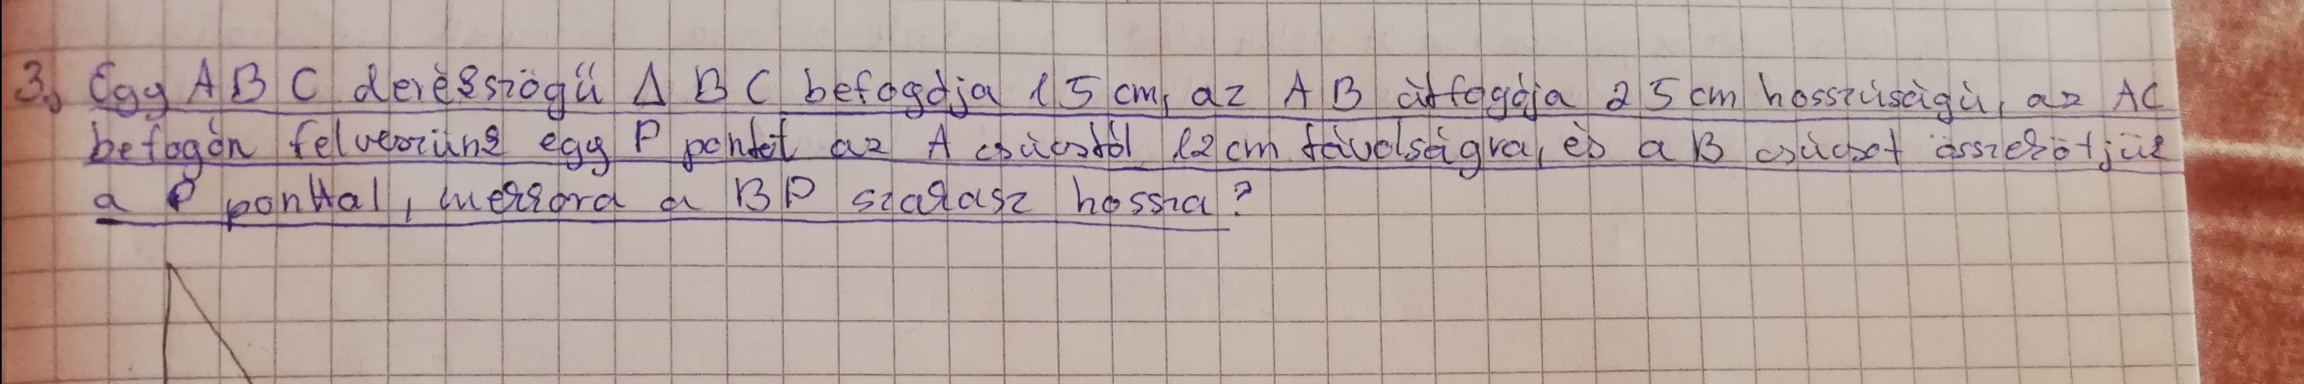 3. Egy ABC derékszögű Δ BC befogója 15 cm, az AB átfogója 25 cm hosszúságú, az AC
befogón felveszünk egy P pontot az A csúcstól 12 cm távolságra, és a B csúcsot összekötjük
a P ponttal, mekkora a BP szakasz hossza?